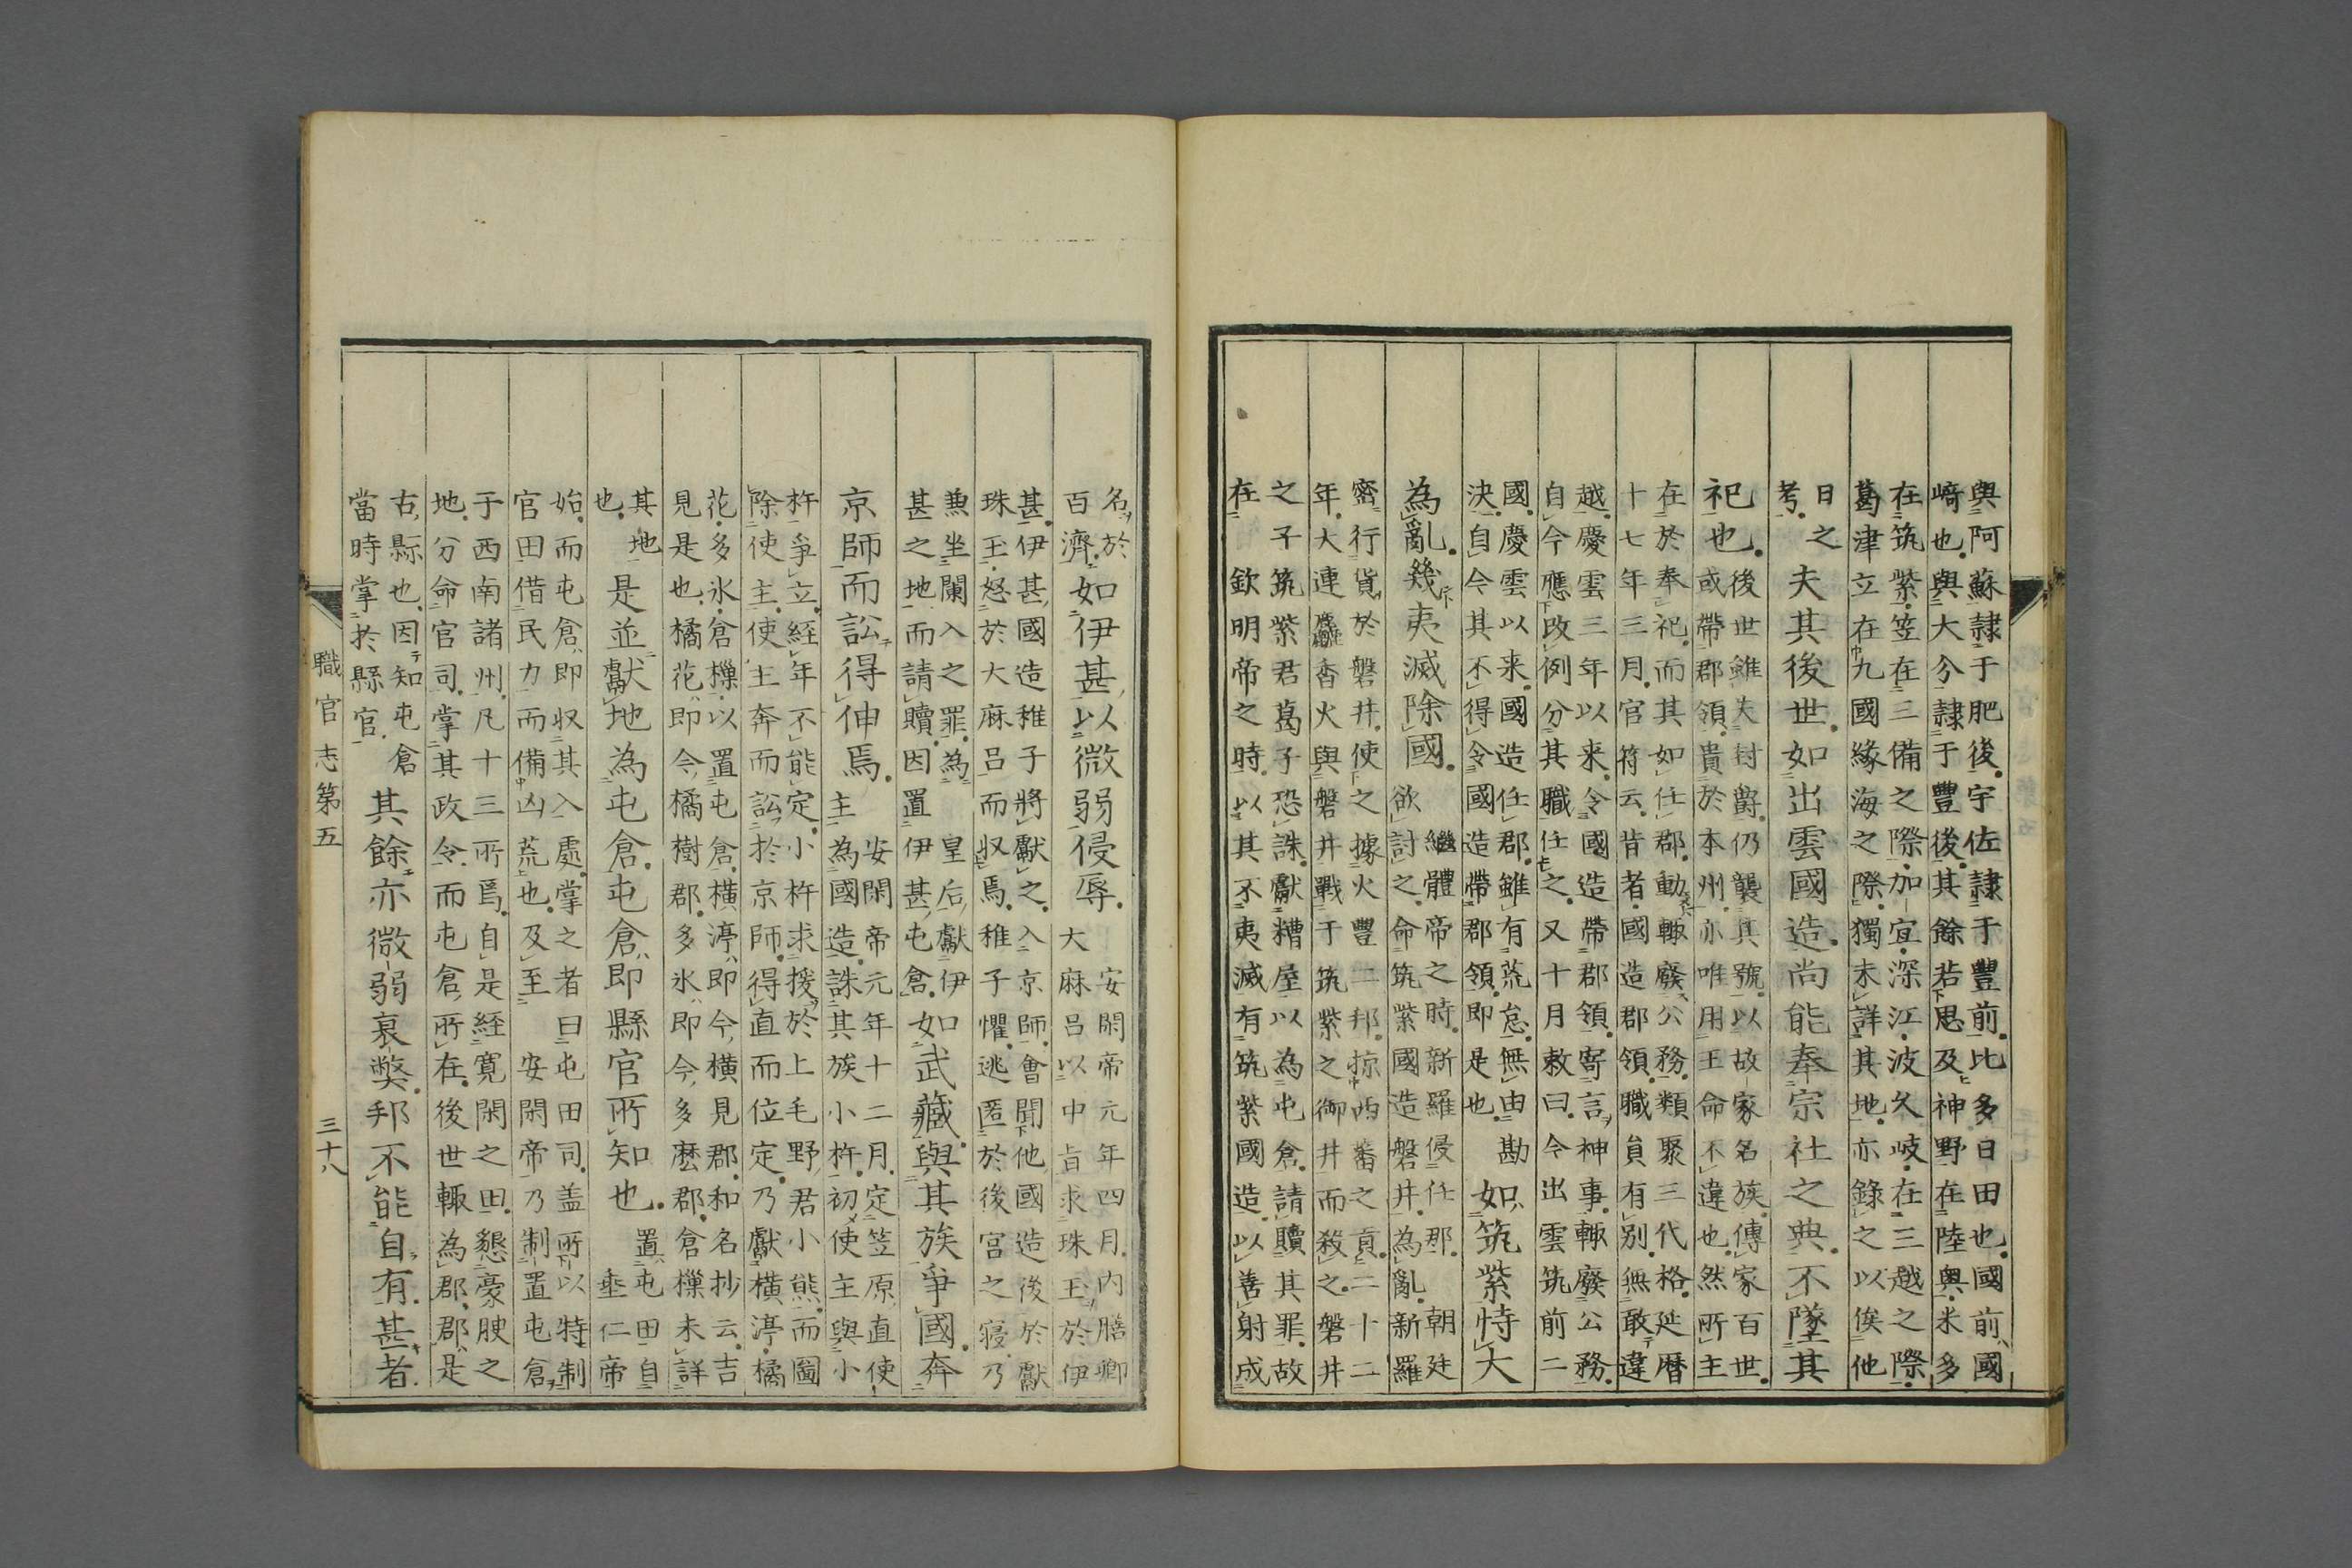 與阿蘇隷于肥後宇佐隷于豐前比多日田也國前國
﨑也與大分隷于豐後其餘若思及神野在陸奥米多
在筑紫笠在三備之際加宜深江波久岐在三越之際
葛津立在九國緣海之際獨未詳其地亦錄之以俟他
日之
考
夫其後世如出雲國造尚能奉宗社之典不墜其
祀也
後世雖失封爵仍襲其號以故家名族傳家百世
或帶郡領貴於本州亦唯用王命不違也然所主
在於奉祀而其如任郡動輙廢公務類聚三代格延曆
十七年三月官符云昔者國造郡領職員有別無敢違
越慶雲三年以来令國造帶郡領寄言神事輙廢公務
自今應改例分其職任之又十月敕曰今出雲筑前二
國慶雲以来國造任郡雖有荒怠無由勘
決自今其不得令國造帶郡領即是也
如筑紫恃大
為亂幾夷滅除國
繼體帝之時新羅侵任那朝廷
欲討之命筑紫國造磐井為亂新羅
齎行貨於磐井使之據火豐二邦掠西蕃之貢二十二
年大連麤鹿火與磐井戰于筑紫之御井而殺之磐井
之子筑紫君葛子恐誅獻糟屋以為屯倉請贖其罪故
在欽明帝之時以其不夷滅有筑紫國造以善射成
名於
百濟
如伊甚以微弱侵辱
安閑帝元年四月内膳卿
大麻呂以中旨求珠玉於伊
甚伊甚國造稚子將獻之入京師會聞他國造後於獻
珠玉怒於大麻呂而収焉稚子懼逃匿於後宮之寢乃
兼坐闌入之罪為皇后獻伊
甚之地而請贖因置伊甚屯倉
如武藏與其族爭國奔
京師而訟得伸焉
安閑帝元年十二月定笠原直使
主為國造誅其族小杵初使主與小
杵爭立經年不能定小杵求援於上毛野君小熊而圖
除使主使主奔而訟於京師得直而位定乃獻橫渟橘
花多氷倉樔以置屯倉橫渟即今橫見郡和名抄云吉
見是也橘花即今橘樹郡多氷即今多麽郡倉樔未詳
其地
也
是並獻地為屯倉屯倉即縣官所知也
置屯田自
垂仁帝
始而屯倉即収其入處掌之者曰屯田司盖所以特制
官田借民力而備凶荒也及至安閑帝乃制置屯倉
于西南諸州凡十三所焉自是經寛閑之田懇豪腴之
地分命官司掌其政令而屯倉所在後世輙為郡郡是
古縣也因知屯倉
當時掌於縣官
其餘亦微弱衰弊邦不能自有甚者
職官志第五
三十八